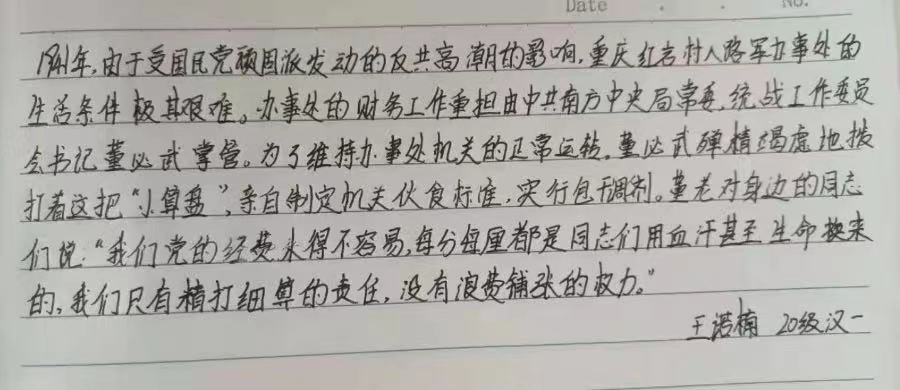 Date . . No.
1941年,由于受国民党顽固派发动的反共高潮的影响,重庆红岩村八路军办事处的
生活条件极其艰难。办事处的财务工作重担由中共南方中央局常委、统战工作委员
会书记董必武掌管。为了维持办事处机关的正常运转,董必武殚精竭虑地拨
打着这把“小算盘”,亲自制定机关伙食标准,实行包干调剂。董老对身边的同志
们说:“我们党的经费来得不容易,每分每厘都是同志们用血汗甚至生命换来
的,我们只有精打细算的责任,没有浪费铺张的权力。”
王诺楠 20级汉一